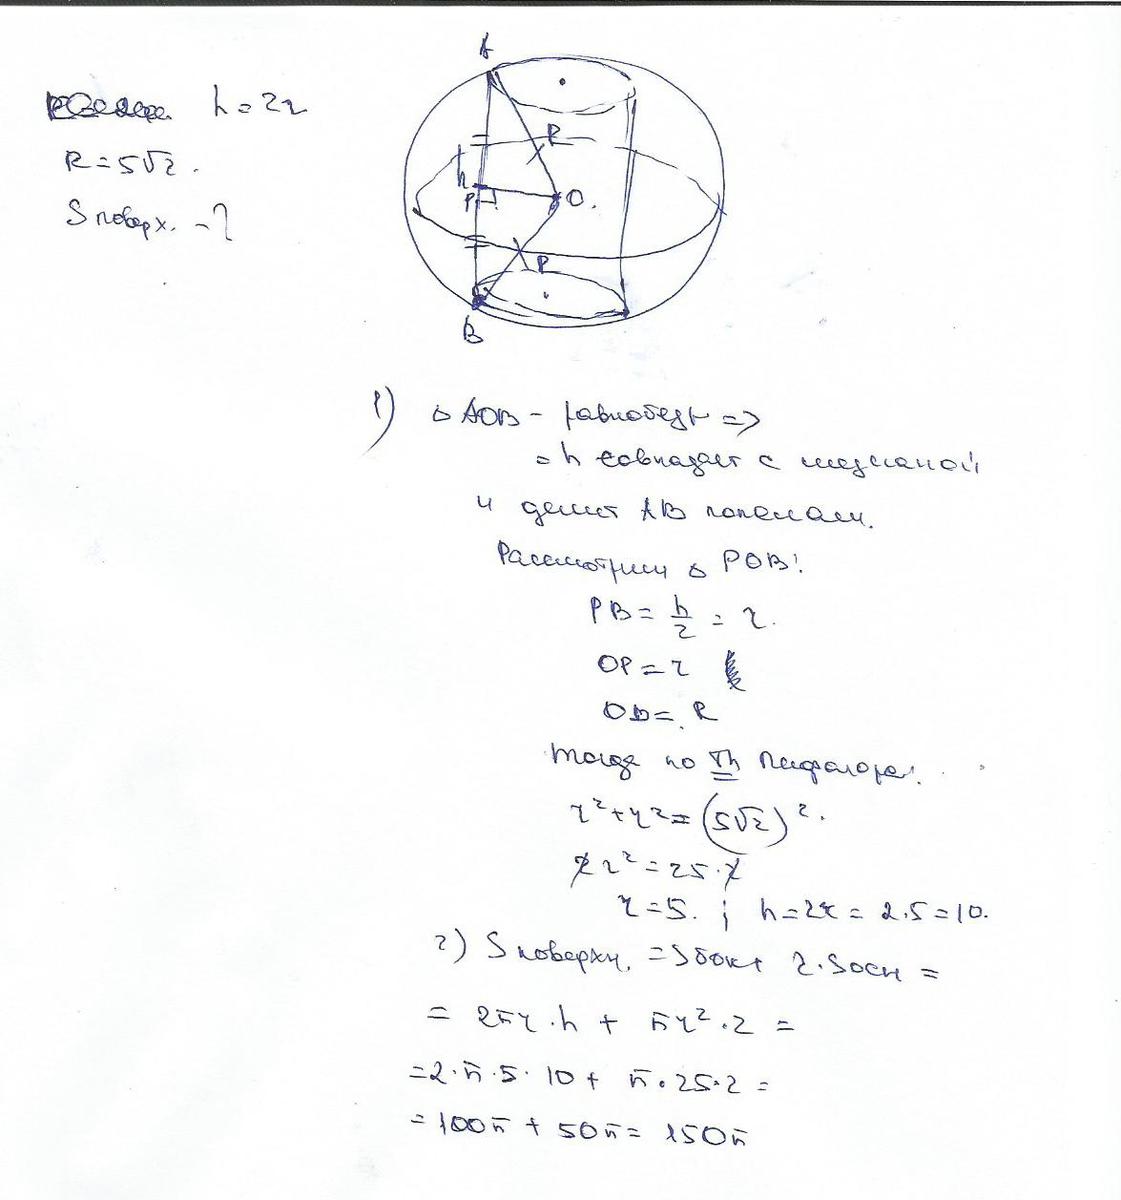 h = 2r
R = 5√2.
S поверх. - ?
A
R
h
P
O.
R
B
1) △ AOB - равнобедр =>
= h совпадает с медианой
и делит AB пополам.
Рассмотрим △ POB:
PB = h/2 = r.
OP = r
OB = R
Тогда по Th Пифагора:
r² + r² = (5√2)².
2r² = 25·2
r = 5. ; h = 2r = 2·5 = 10.
2) S поверхн. = S бок + 2·S осн =
= 2πr·h + πr²·2 =
= 2·π·5·10 + π·25·2 =
= 100π + 50π = 150π